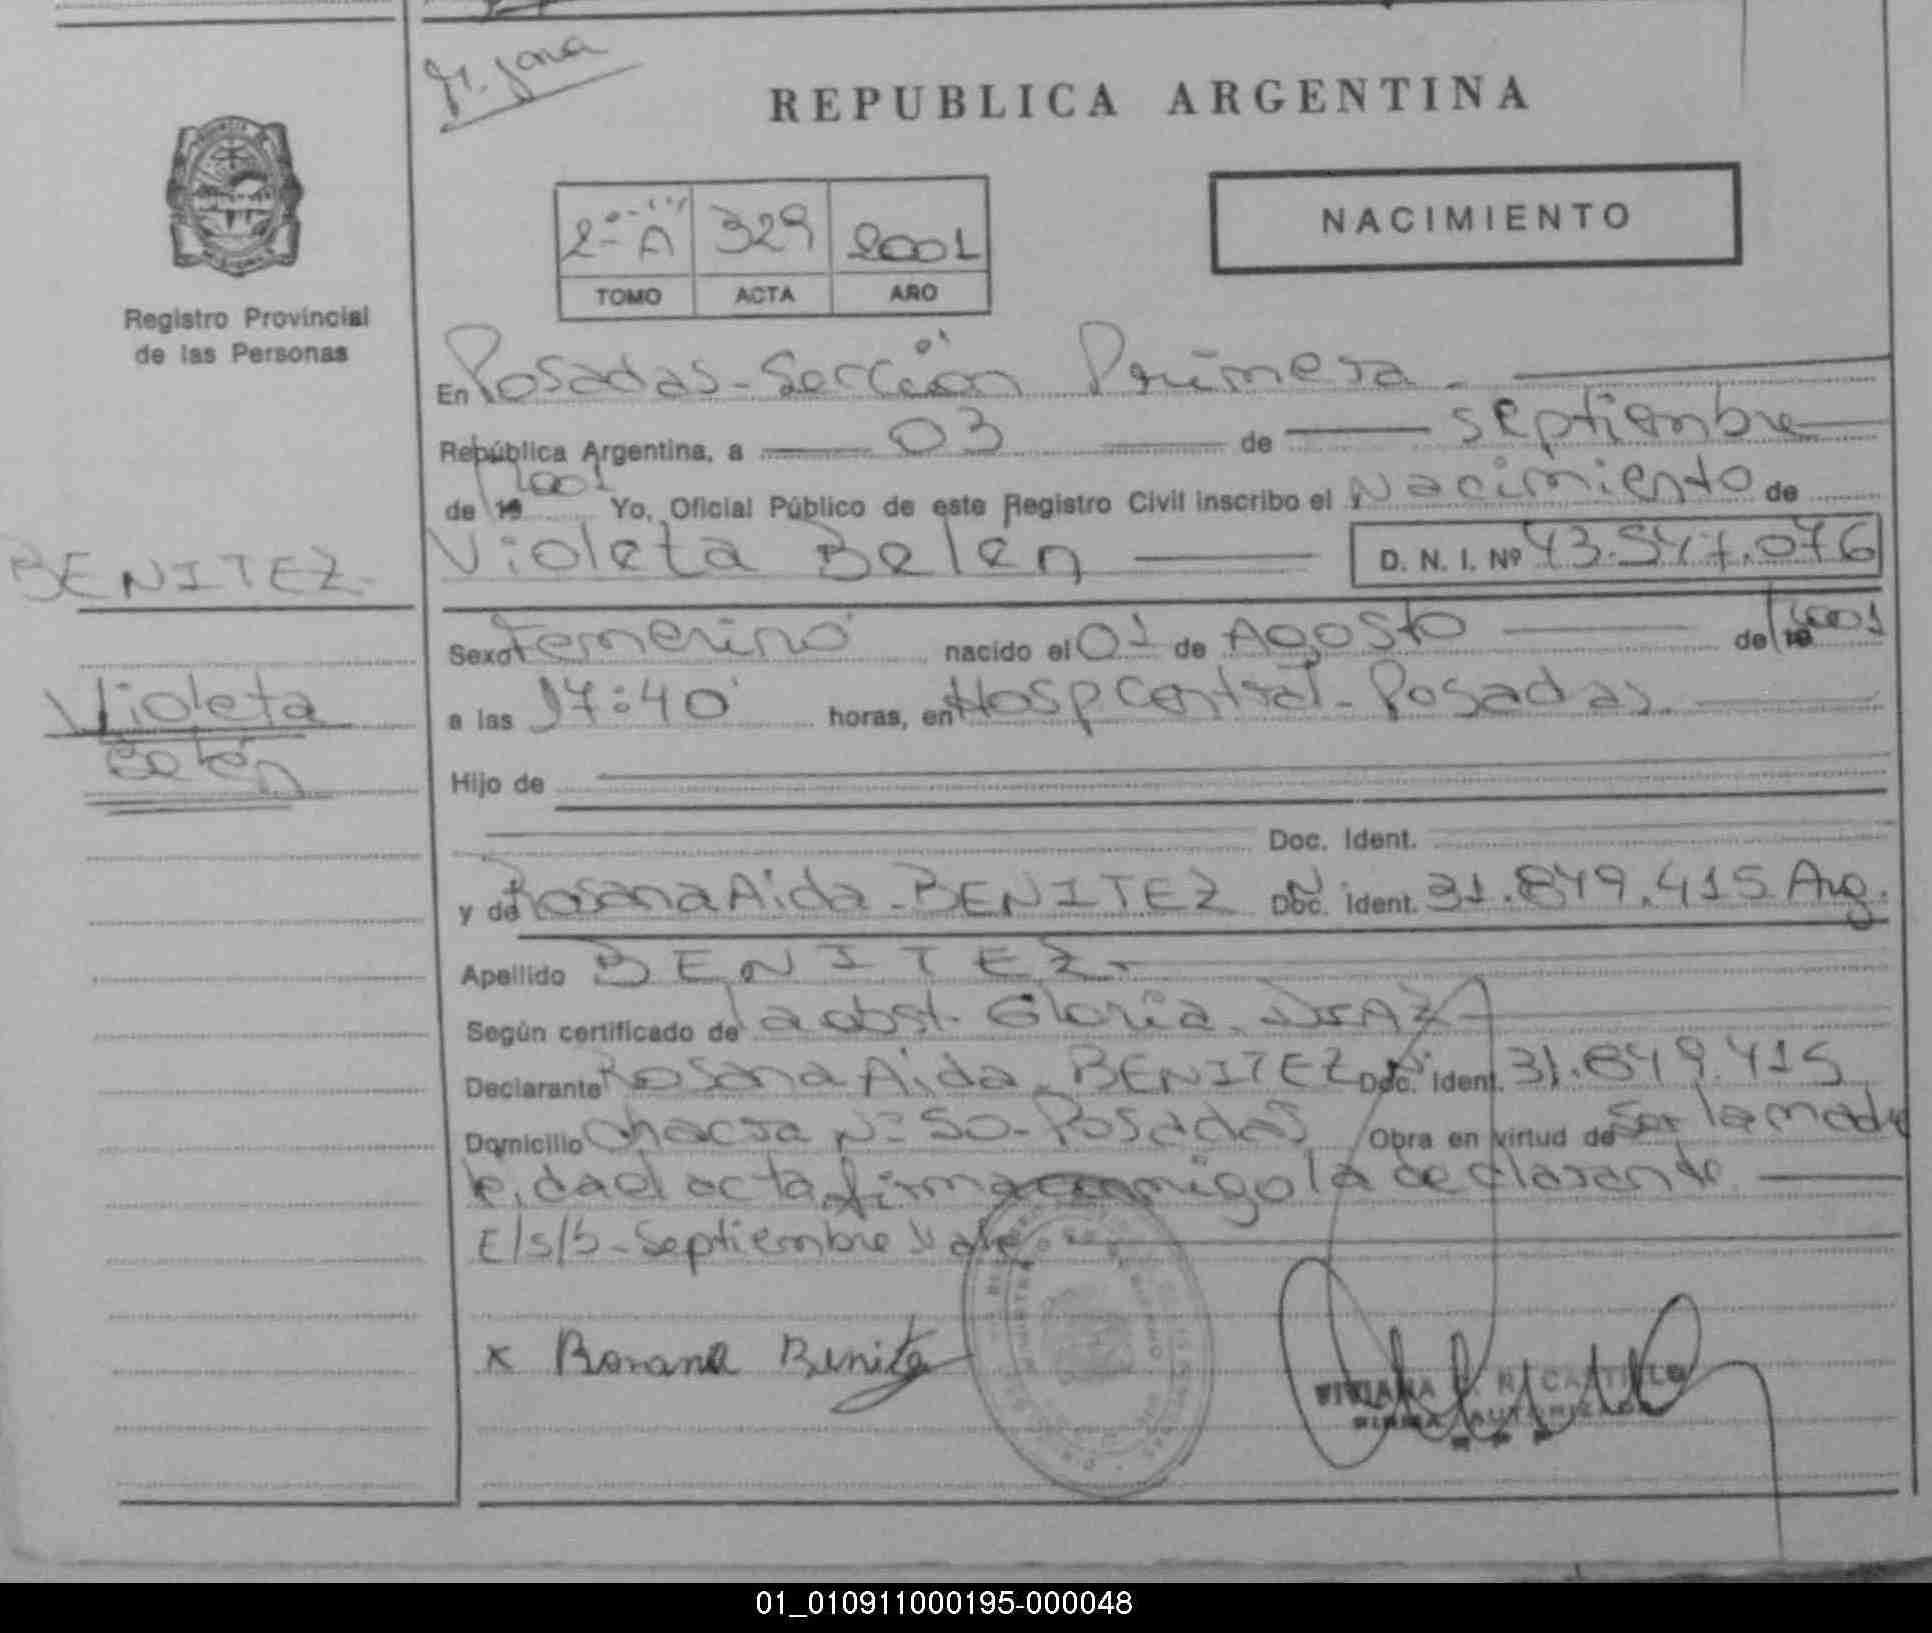 REPUBLICA ARGENTINA
NACIMIENTO
2º A 329 2001
TOMO ACTA AÑO
Registro Provincial
de las Personas
En Posadas - Sección Primera.
República Argentina, a 03 de septiembre
de 19 2001 Yo, Oficial Público de este Registro Civil inscribo el Nacimiento de
Violeta Belén D. N. I. Nº 43.547.076
BENITEZ.
Violeta
Belén
Sexo Femenino nacido el 01 de Agosto de 19 2001
a las 17:40 horas, en Hosp Central - Posadas.
Hijo de
Doc. Ident.
y de Rosana Aida - BENITEZ Doc. Ident. 31.849.415 Arg.
Apellido BENITEZ.
Según certificado de la obst. Gloria DIAZ
Declarante Rosana Aida - BENITEZ Doc. Ident. 31.849.415
Domicilio Chacra Nº 50 - Posadas Obra en virtud de ser la madre
leida el acta firma conmigo la declarante.
E/s/b - Septiembre Vale
x Rosana Benitez
VIVIANA R. CASTILLO
FIRMA AUTORIZADA
01_010911000195-000048